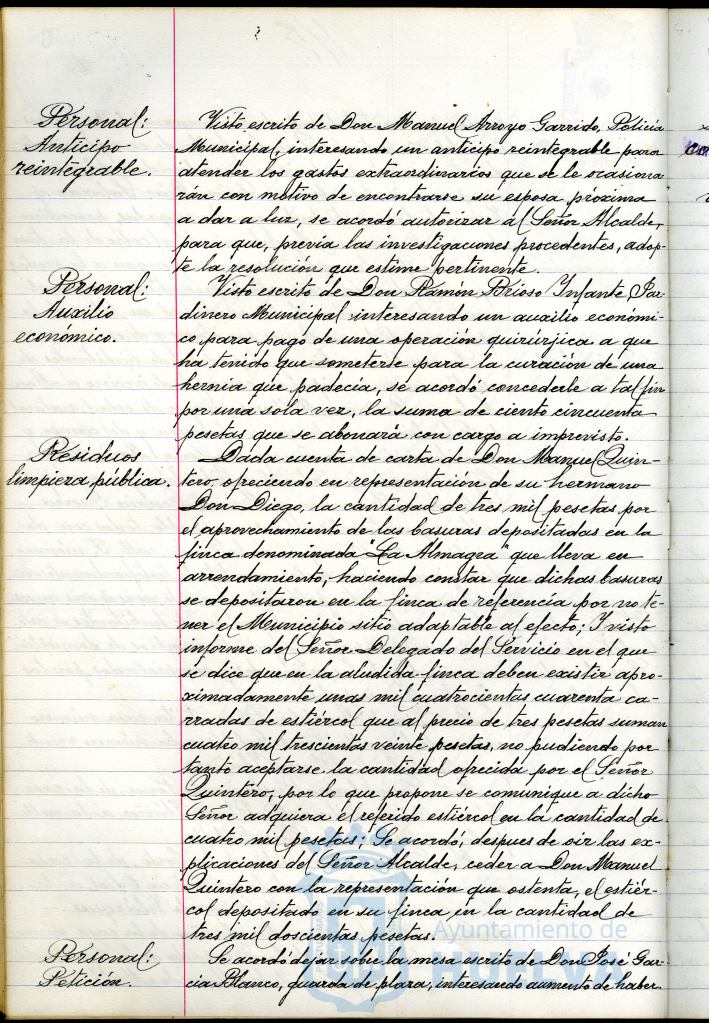 Personal:
Anticipo
reintegrable.
Visto escrito de Don Manuel Arroyo Garrido, Policía
Municipal, interesando un anticipo reintegrable para
atender los gastos extraordinarios que se le ocasiona
rán con motivo de encontrarse su esposa próxima
a dar a luz, se acordó autorizar al Señor Alcalde,
para que, previa las investigaciones procedentes, adop-
te la resolución que estime pertinente.
Personal:
Auxilio
económico.
Visto escrito de Don Ramón Brioso Infante, Jar-
dinero Municipal interesando un auxilio económi-
co para pago de una operación quirúrjica a que
ha tenido que someterse para la curación de una
hernia que padecía, se acordó concederle a tal fin
por una sola vez, la suma de ciento cincuenta
pesetas que se abonará con cargo a imprevisto.
Residuos
limpieza pública.
Dada cuenta de carta de Don Manuel Quin-
tero, ofreciendo en representación de su hermano
Don Diego, la cantidad de tres mil pesetas por
el aprovechamiento de las basuras depositadas en la
finca denominada "La Almagra" que lleva en
arrendamiento, haciendo constar que dichas basuras
se depositaron en la finca de referencia por no te-
ner el Municipio sitio adaptable al efecto; Y visto
informe del Señor Delegado del Servicio en el que
se dice que en la aludida finca deben existir apro-
ximadamente unas mil cuatrocientas cuarenta ca-
rradas de estiércol que al precio de tres pesetas suman
cuatro mil trescientas veinte pesetas, no pudiendo por
tanto aceptarse la cantidad ofrecida por el Señor
Quintero, por lo que propone se comunique a dicho
Señor adquiera el referido estiércol en la cantidad de
cuatro mil pesetas; Se acordó, despues de oir las ex-
plicaciones del Señor Alcalde, ceder a Don Manuel
Quintero con la representación que ostenta, el estiér-
col depositado en su finca en la cantidad de
tres mil doscientas pesetas.
Personal:
Petición.
Se acordó dejar sobre la mesa escrito de Don José Gar-
cia Blanco, guarda de plaza, interesando aumento de haber.
Ayuntamiento de
Huelva